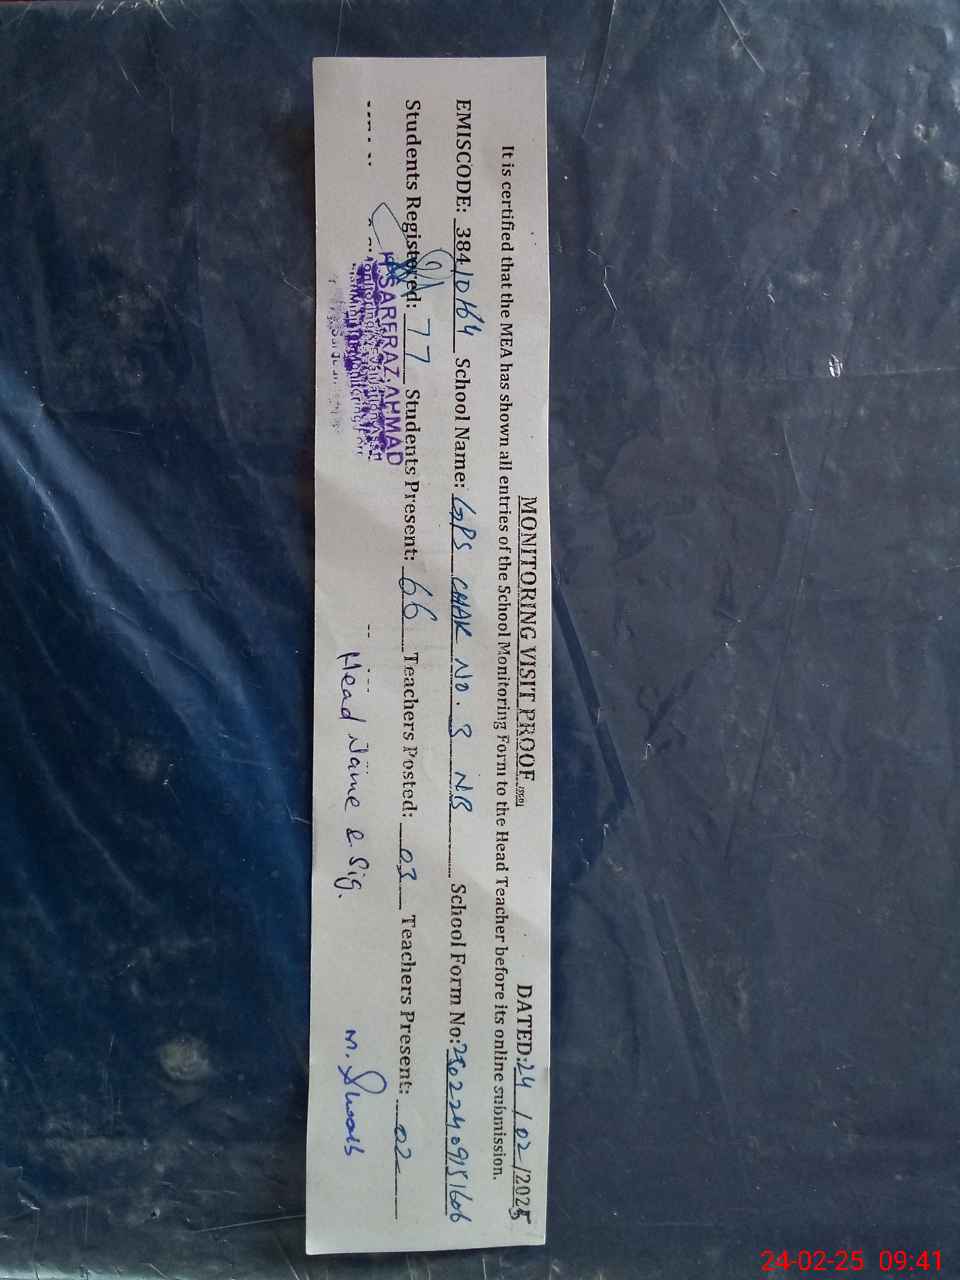 MONITORING VISIT PROOF
DATED: 24/02/2025
It is certified that the MEA has shown all entries of the School Monitoring Form to the Head Teacher before its online submission.
EMISCODE: 38410164 School Name: GPS CHAK NO. 3 NB School Form No:
Students Registered: 77 Students Present: 66 Teachers Posted: 03 Teachers Present: 02
SARFRAZ AHMAD
Head Name & Sig.
24-02-25 09:41